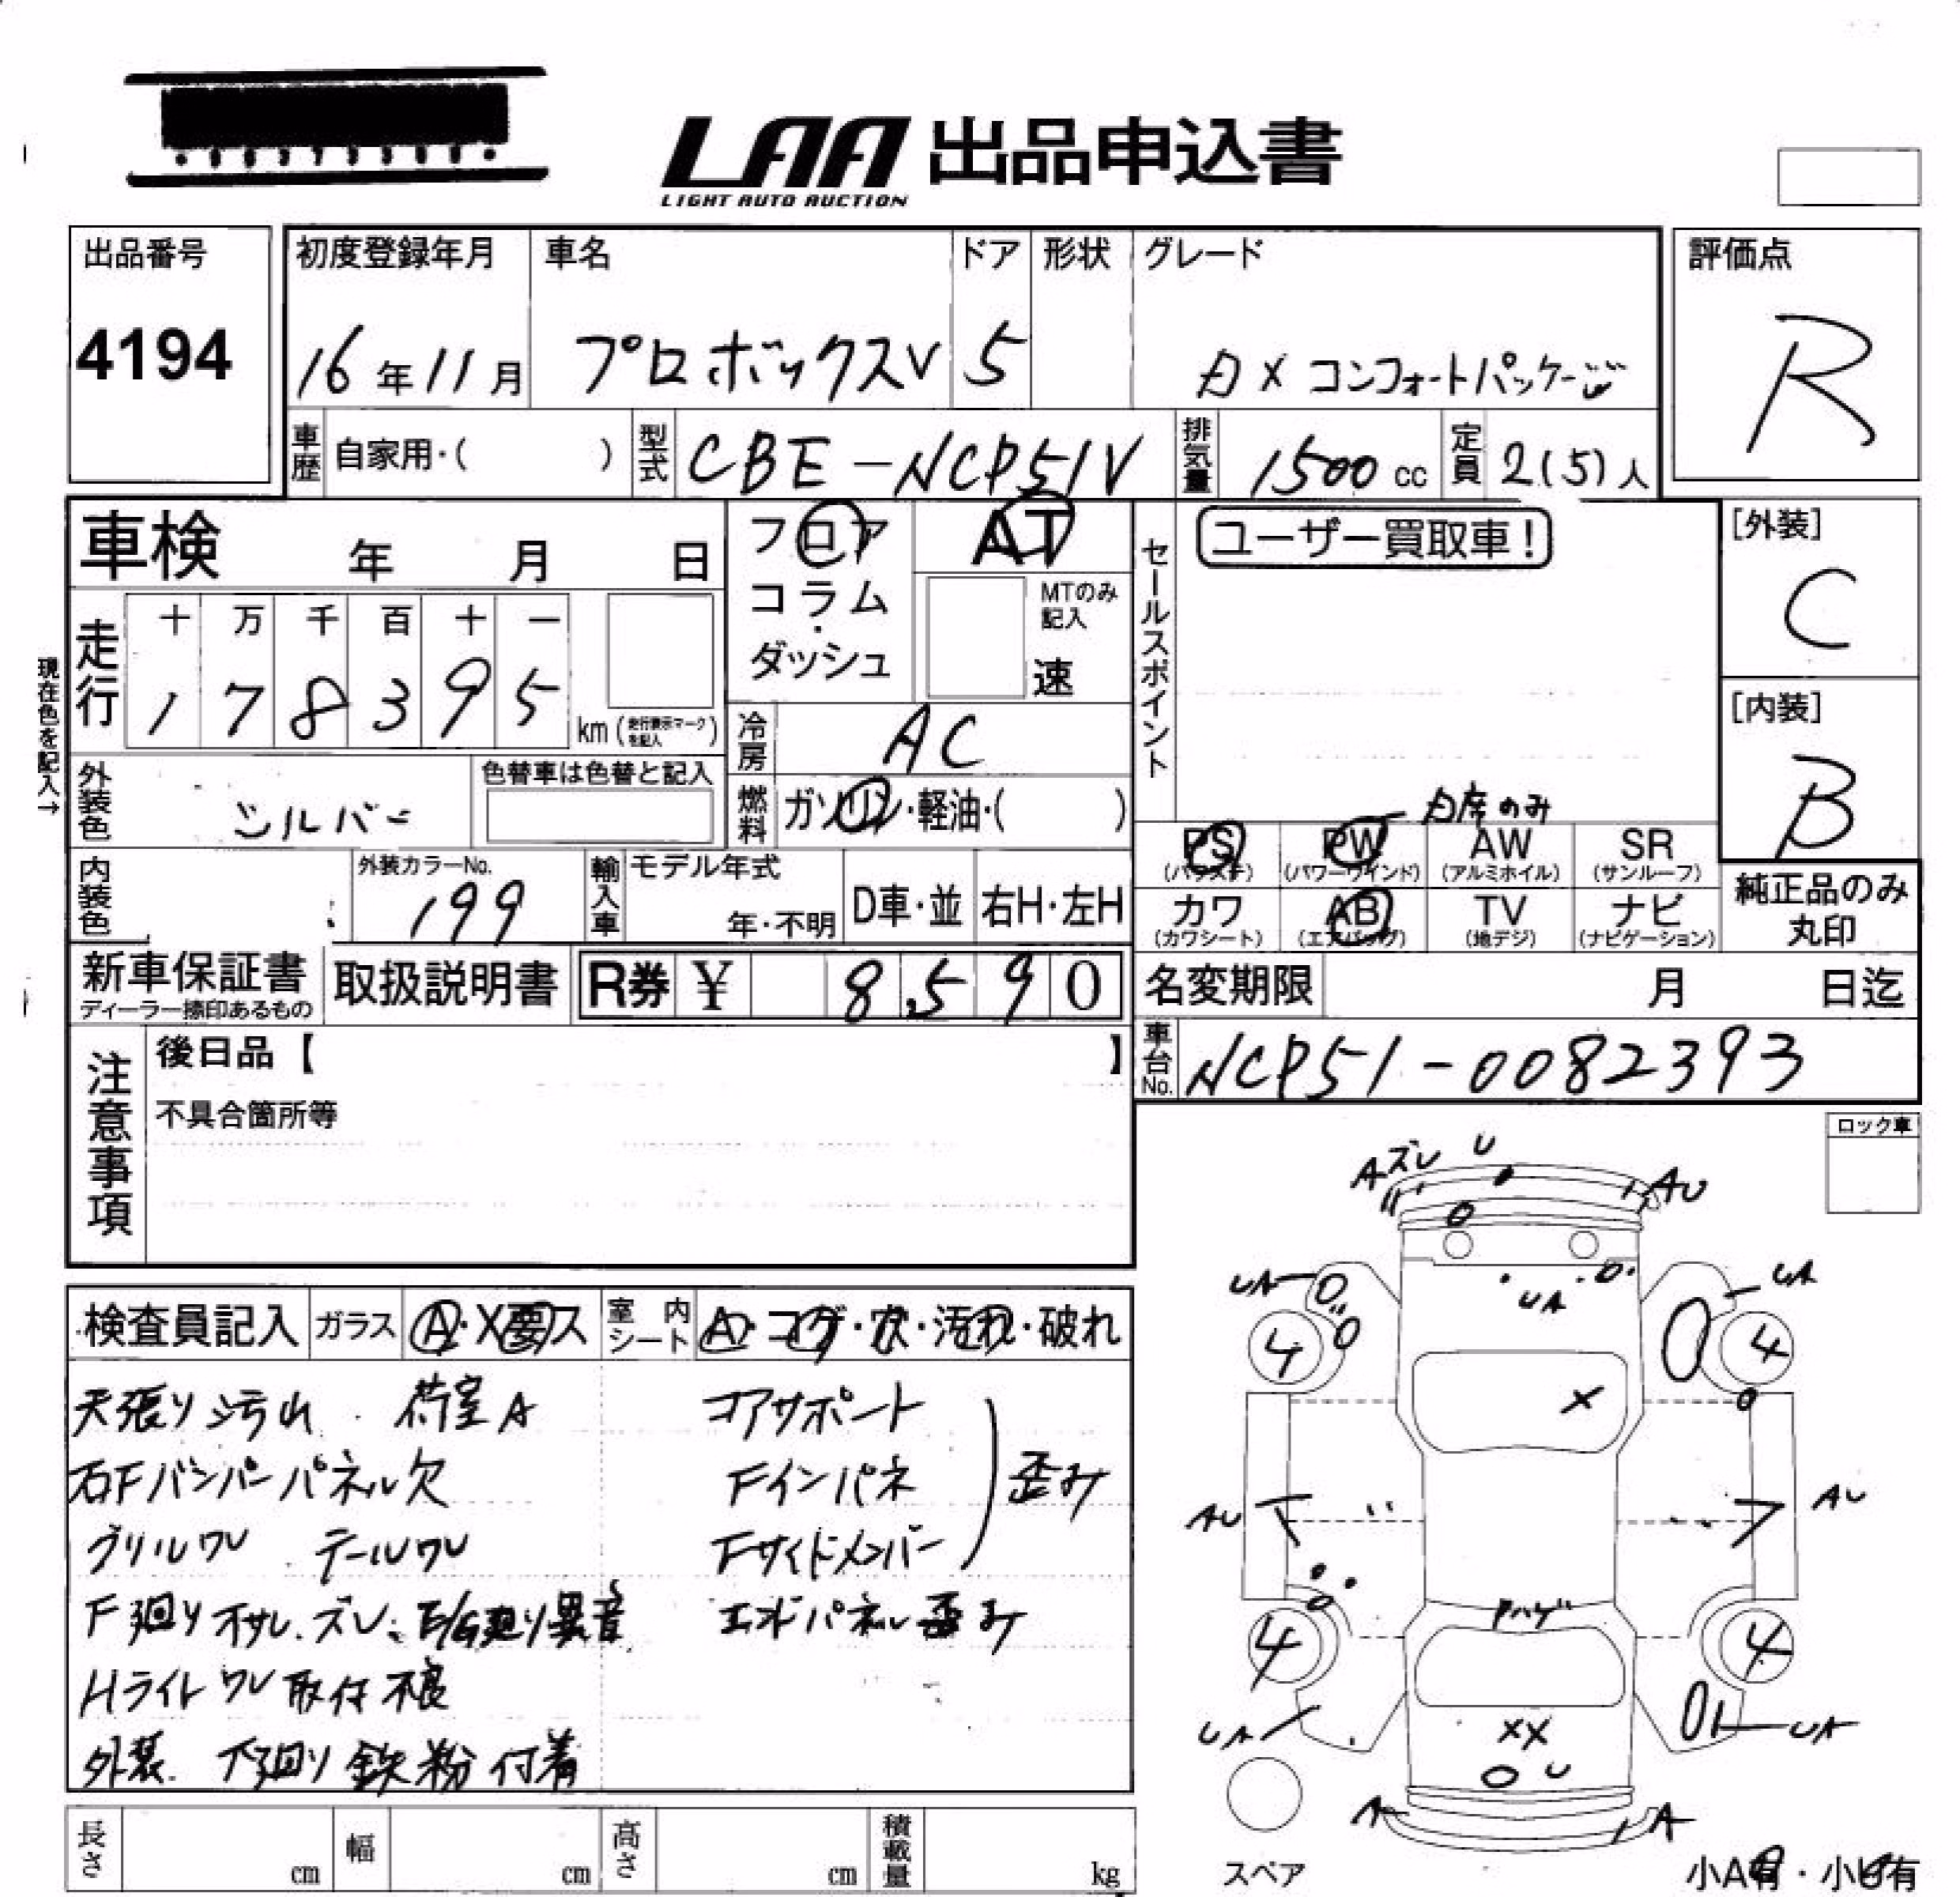 LAA 出品申込書
LIGHT AUTO AUCTION
出品番号 初度登録年月 車名 ドア 形状 グレード 評価点
4194 16年11月 プロボックスV 5 DX コンフォートパッケージ R
車歴 自家用・( ) 型式 CBE-NCP51V 排気量 1500cc 定員 2(5)人
車検 年 月 日 フロア AT セールスポイント ユーザー買取車! [外装]
コラム・ MTのみ記入 C
ダッシュ 速
現在色を記入→
走行 十 万 千 百 十 一
1 7 8 3 9 5 km(走行表示マークを記入) [内装]
冷房 AC B
外装色 シルバー 色替車は色替と記入 燃料 ガソリン・軽油・( )
席のみ
PS PW AW SR
(パワステ) (パワーウインド) (アルミホイル) (サンルーフ)
内装色 外装カラーNo. 199 輸入車 モデル年式 年・不明 D車・並 右H・左H
カワ AB TV ナビ 純正品のみ
(カワシート) (エアバッグ) (地デジ) (ナビゲーション) 丸印
新車保証書 取扱説明書 R券 ¥ 8,590 名変期限 月 日迄
ディーラー捺印あるもの
注意事項 後日品【 】 車台No. NCP51-0082393
不具合箇所等
ロック車
検査員記入 ガラス A・X要ス 室内シート A・コゲ・穴・汚れ・破れ
天張り汚れ 荷室A コアサポート
右Fバンパーパネル欠 Fインパネ 歪み
グリルワレ テールワレ Fサイドメンバー
F廻り ズレ E/G廻り異音 エンドパネル歪み
Hライトワレ取付不良
外装 下廻り鉄粉付着
Aズレ U
AU
UA UA UA
4 4
X
AU AU
Pハゲ
4 4
UA XX UA
U
A A
スペア
小A有・小U有
長さ cm 幅 cm 高さ cm 積載量 kg